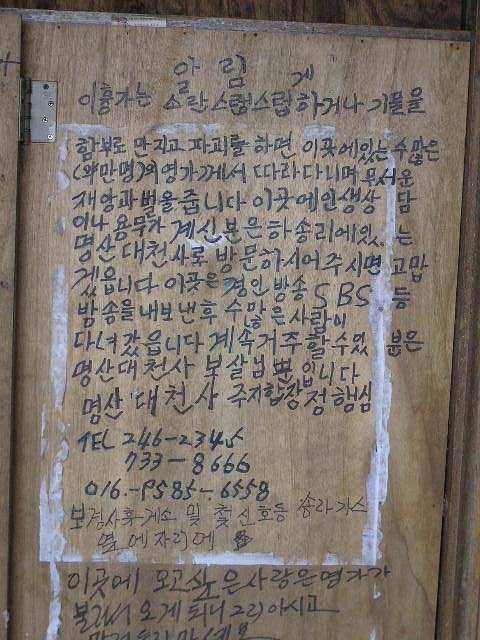 알림
이흉가는 소란스럽스럽게 하거나 기물을
함부로 만지고 파괴를 하면 이곳에있는 수많은
(와만명)의영가게서 따라다니며 무서운
재앙과벌을줍니다 이곳에인생상담
이나 용무가 계신분은하송리에있는
명산대천사로 방문하시어주시면 고맙
겠읍니다 이곳은 경인방송 SBS 등
방송을내보낸후 수많은사람이
다녀갔읍니다 계속거주할수있 분은
명산대천사 보살님뿐입니다
명산 대천사 주지합장정해심
TEL 246-2345
733-8666
016-9585-6558
보경사휴게소 및 첫신호등 송라가스
옆에자리에
이곳에 오고싶은사람은영가가
불러서 오게되니그리아시고